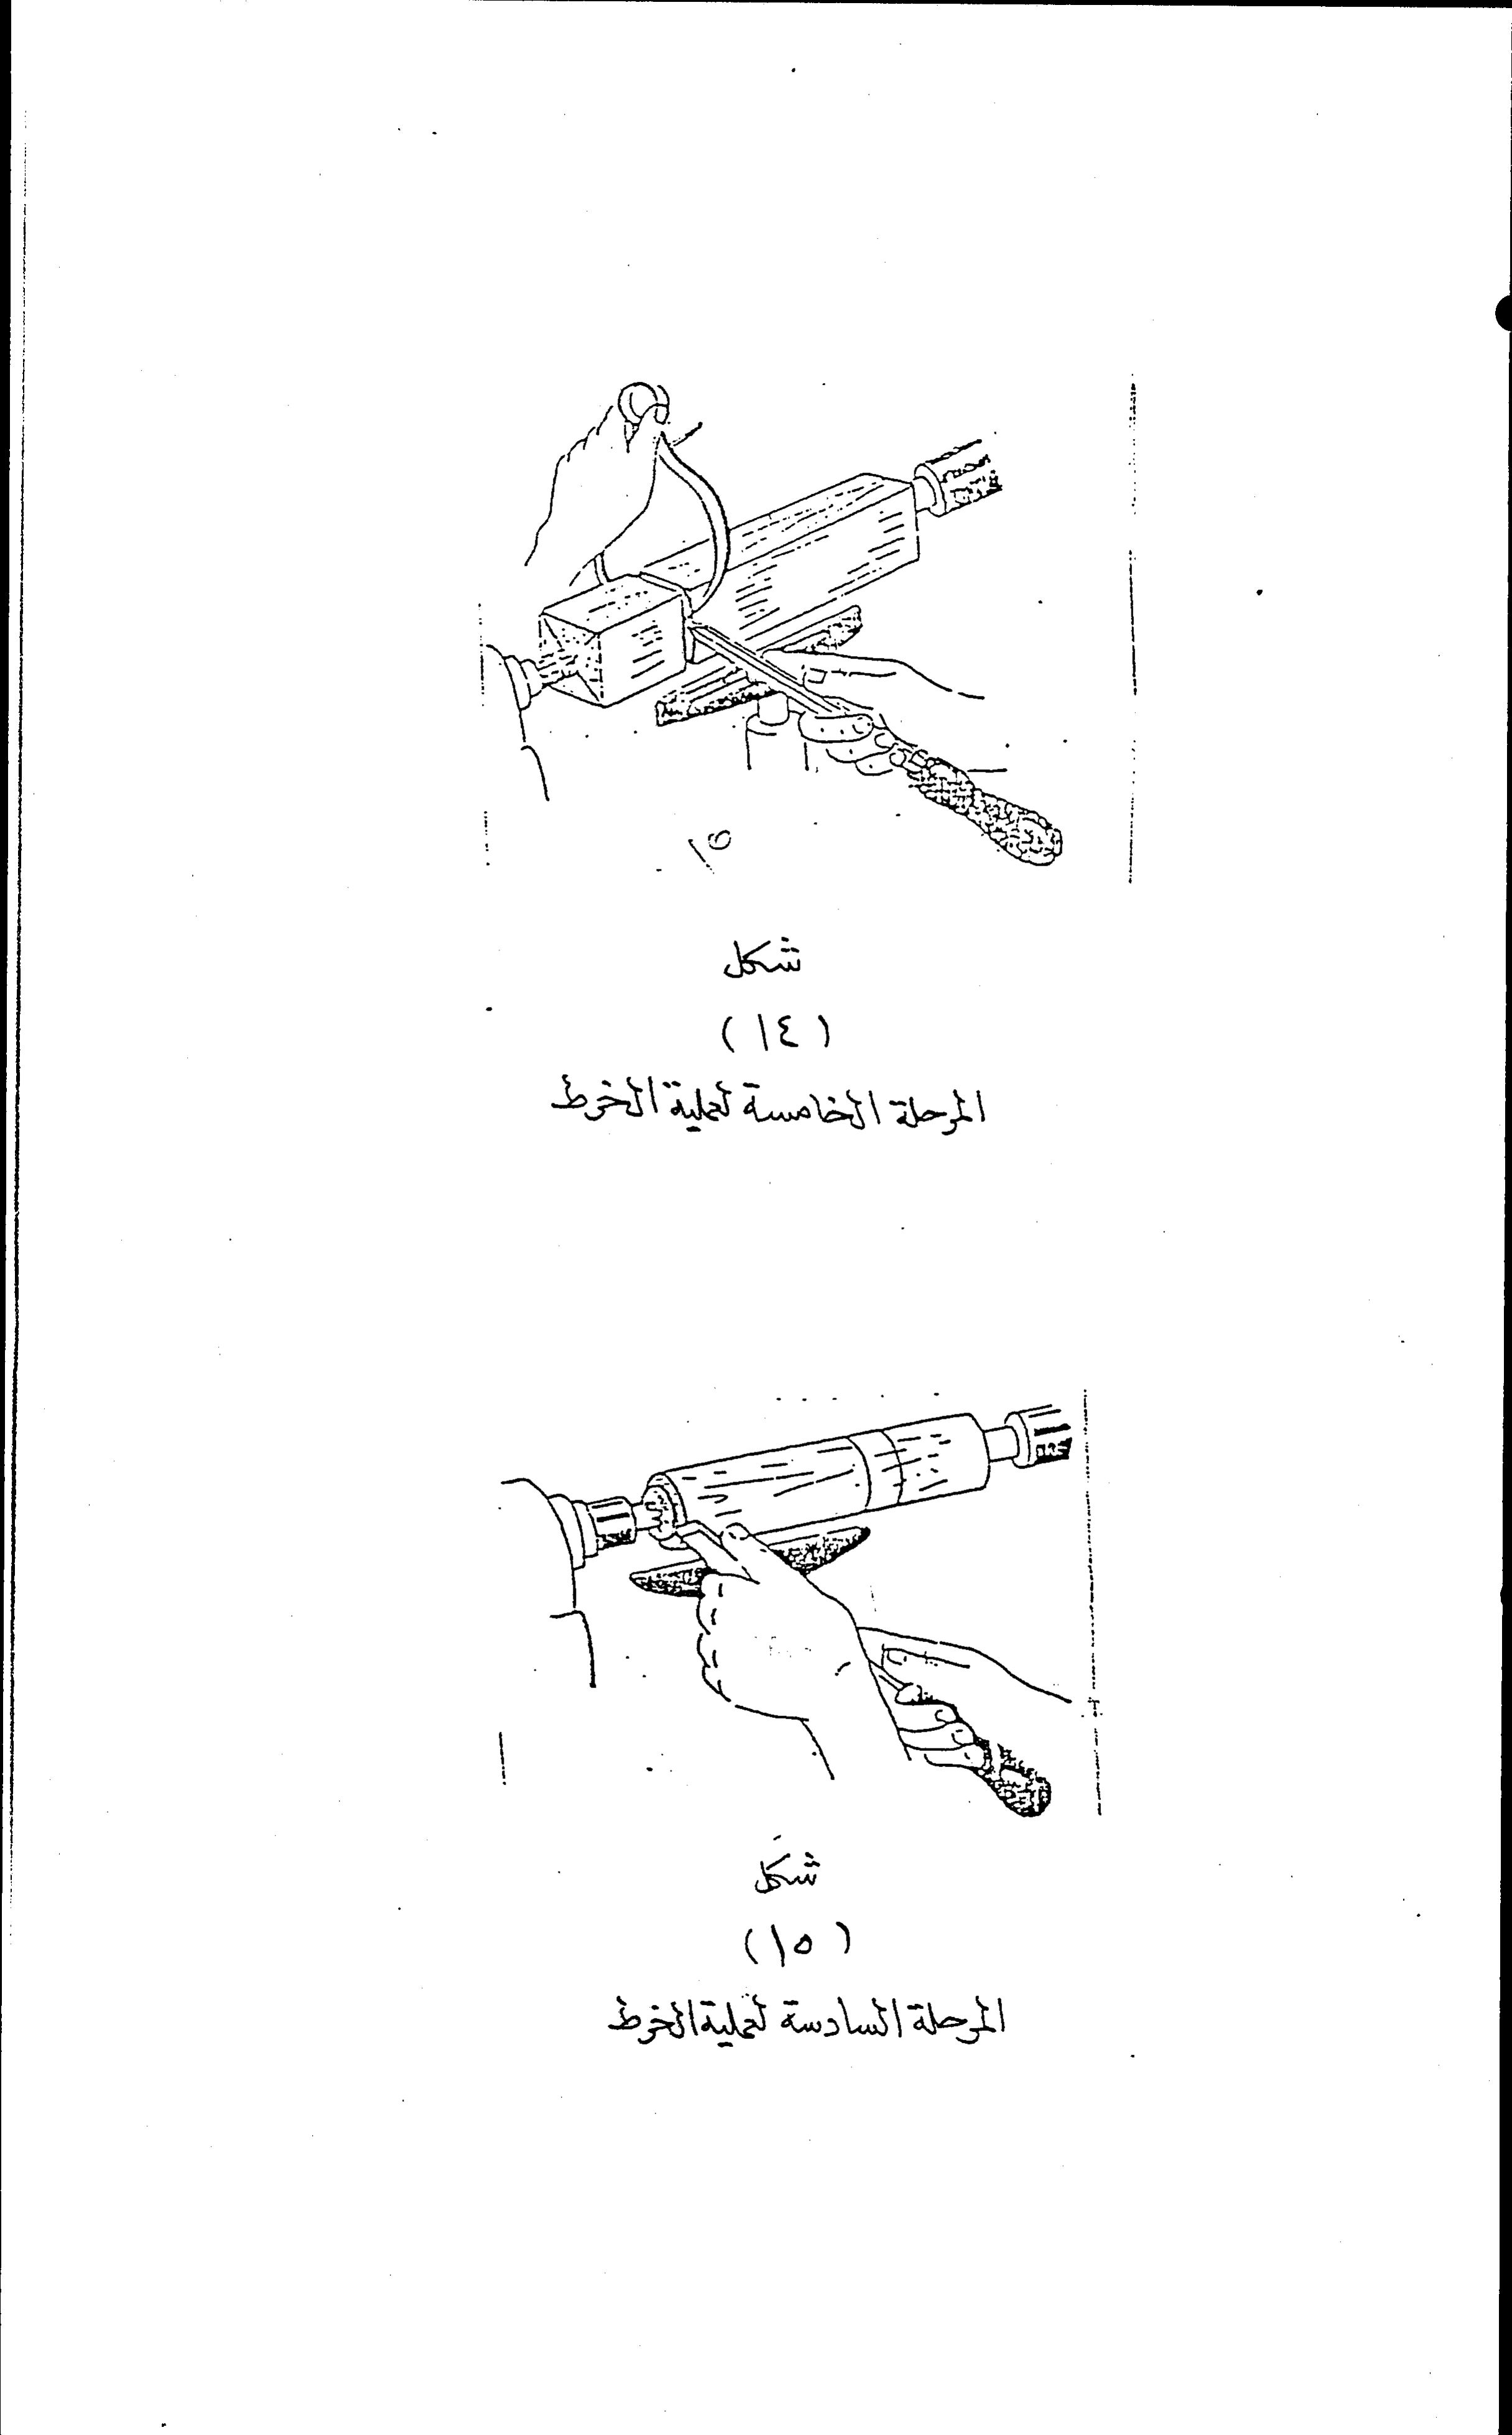 ١٥
شكل
( ١٤ )
المرحلة الخامسة لعملية الخرط
شكل
( ١٥ )
المرحلة السادسة لعملية الخرط